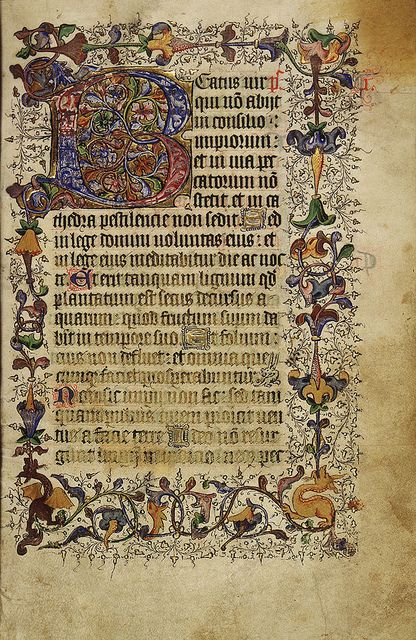 Beatus uir
qui nō abijt
in consilio
impiorum:
et in uia pec
catorum nō
stetit. et in ca
thedra pestilencie non sedit. Sed
in lege domini uoluntas eius: et
in lege eius meditabitur die ac noc
te. Et erit tanquam lignum qd
plantatum est secus decursus a
quarum: quod fructum suum da
bit in tempore suo. Et folium
eius non defluet: et omnia que
cunqe faciet prosperabuntur.
Non sic impij non sic: sed tam
quam puluis quem proicit uen
tus a facie terre. Ideo nō resur
gunt impij in iudicio: neqe pec